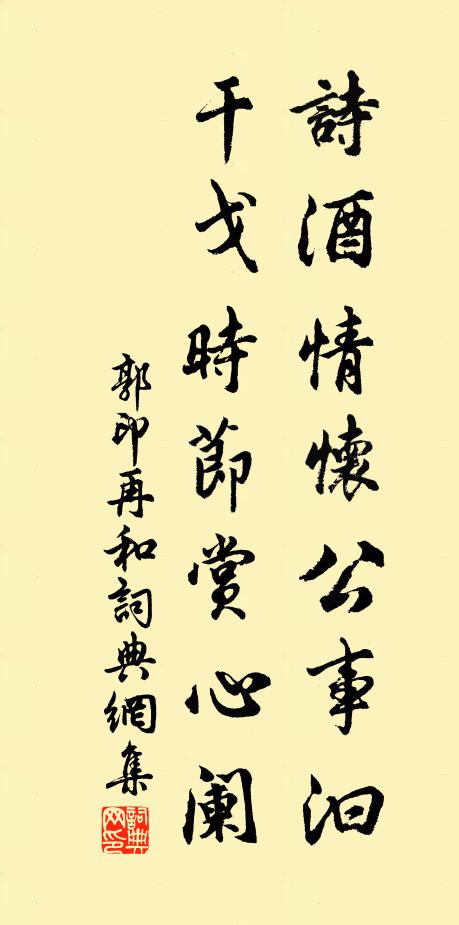 詩酒情懷公事汩
干戈時節賞心闌
郭印再和詞典網集
詞典网印